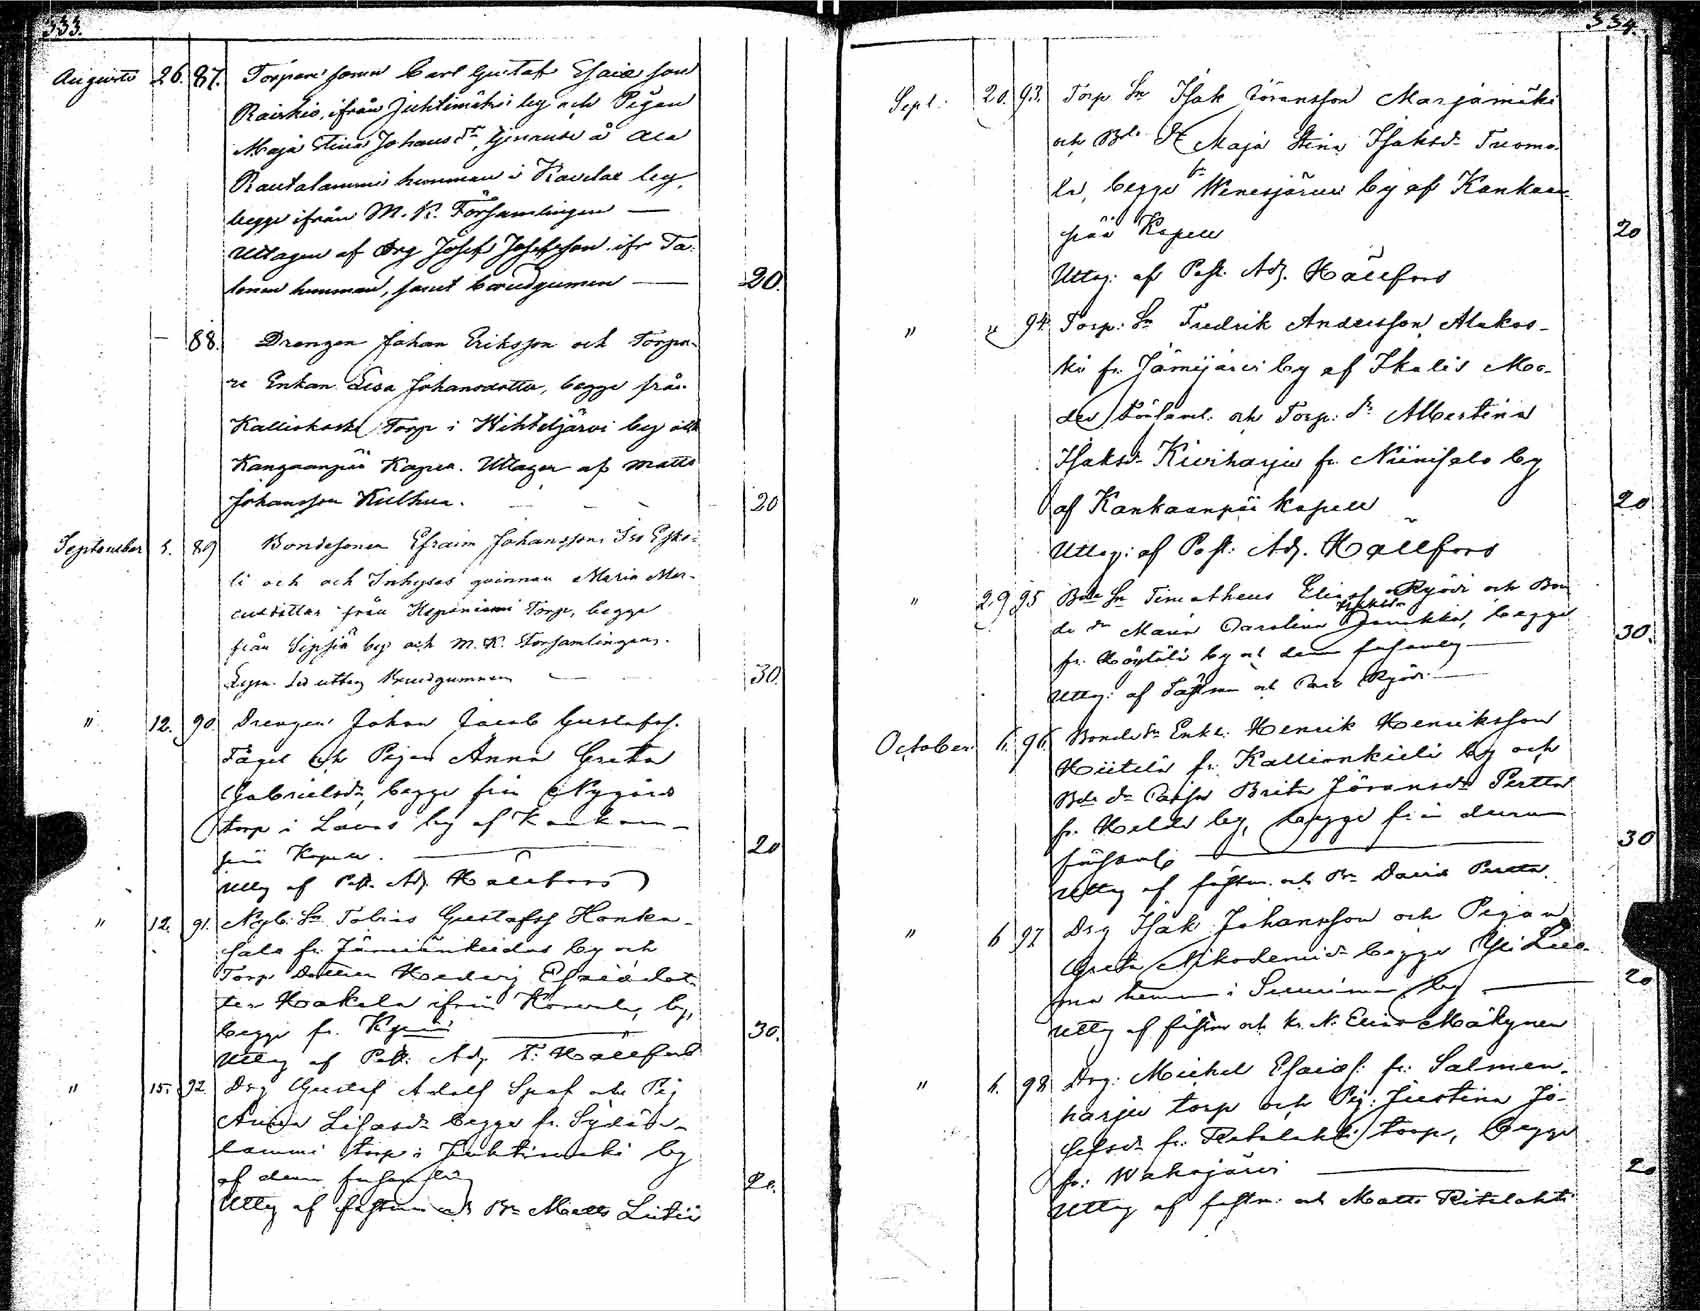 333.
Augusti 26. 87. Torpare sonen Carl Gustaf Esaie son
ifrån Juhtimäki by och Pigan
Maja Stina Johans dr, tjenande å Ala
Rautalammi hemman i by,
begge ifrån M. K. Församlingen —
Uttagen af Drg Josef Josefsson ifr Ta-
lonen hemman, samt brudgumen — 20.
— 88. Drengen Johan Eriksson och Torpa-
re Enkan Lisa Johansdotter, begge från
Kalliokoski Torp i Wihteljärvi by och
Kangaanpää Kapell. Uttagen af Matts
Johansson — 20
September 5. 89 Bondesonen Efraim Johansson Iso Eske-
li och och Inhyses qvinnan Maria Mar-
cusdotter från Torp, begge
från by och M. K. Församlingen.
Lysn. Sed. uttag Brudgummen — 30.
" 12. 90. Drengen Johan Jacob Gustafss.
och Pigan Anna Greta
Gabrielsdr, begge från Nygård
torp i Lavas by af Kankaan-
pää Kapell. — 20
Uttag af Past. Adj. Hällfors
" 12. 91. Nyb. Sn Tobias Gustafss Honka-
salo fr. by och
Torp. Dottren Hedvig Esaiedot-
ter Hakala ifrån by,
begge fr. — 30.
Uttag af Past. Adj. Hällfors
" 15. 92. Drg Gustaf Adolf och Pig
Anna begge fr. Sydän-
lammi torp i Juhtimäki by
af denna församling — 20.
Uttag af fästman och Bn Matts
334.
Sept. 20. 93. Torp. Sn Isak Göransson Marjamäki
och Bde Dr Maja Stina Isaksdr Tuoma-
la, begge fr Wenesjärvi by af Kankaan-
pää Kapell 20
Uttag: af Past. Adj. Hällfors
" " 94. Torp: Sn Fredrik Andersson Alakos-
ki fr. Jämijärvi by af Ikalis Mo-
der Församl. och Torp: dr Albertina
Isaksdr Kiviharju fr. Niinisalo by
af Kankaanpää Kapell 20
Uttag: af Past: Adj. Hällfors
" 29 95 Bde Sn Timotheus Eliass Ryödi och Bon-
de dr Maria Carolina Isaksdr begge
fr. by och denna församling — 30.
Uttag: af fästman och
October 6. 96. Bonde Enkl. Henrik Henriksson
Hiitelä fr. Kallionkieli by och
Bde dr Caisa Brita Jöransdr Perttu
fr. by, begge från denna
församl — 30
Uttag af fästm. och Bn David Perttu
" 6 97 Drg Isak Johansson och Pigan
Greta Nikodemidr begge Yli Luo-
ma hemm i by — 20
Uttag af fästm och Elias Mäkynen
" 6. 98. Drg: Michel Esaiss: fr: Salmen-
harju torp och Pig: Justina Jo-
sefsdr fr: Ritalahti torp, begge
fr: Wahojärvi — 20
Uttag af fästm: och Matts Ritalahti